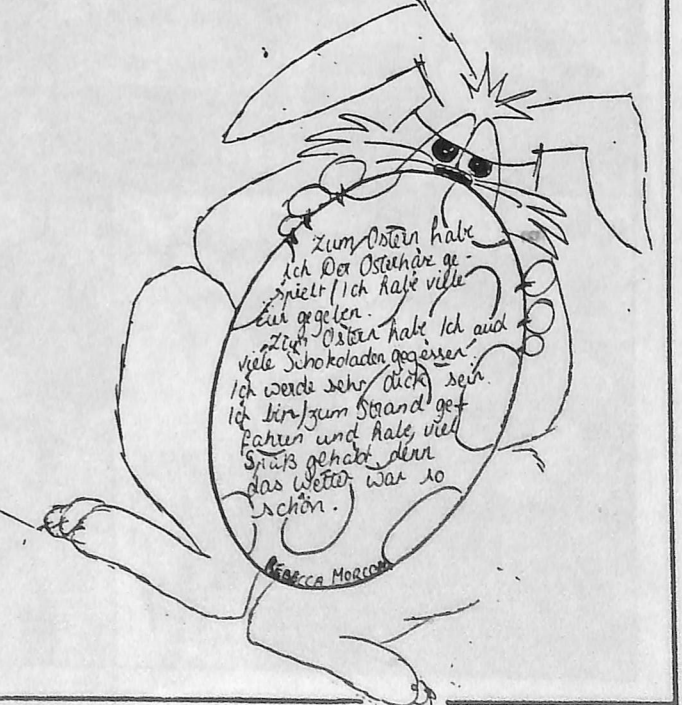 Zum Ostern habe
Ich Der Osterhase ge-
spielt / Ich habe viele
Eier gegeben.
Zum Ostern habe Ich auch
viele Schokoladen gegessen.
Ich werde sehr dick sein.
Ich bin zum Strand ge-
fahren und habe viel
Spaß gehabt denn
das Wetter war so
schön.
REBECCA MORCOM